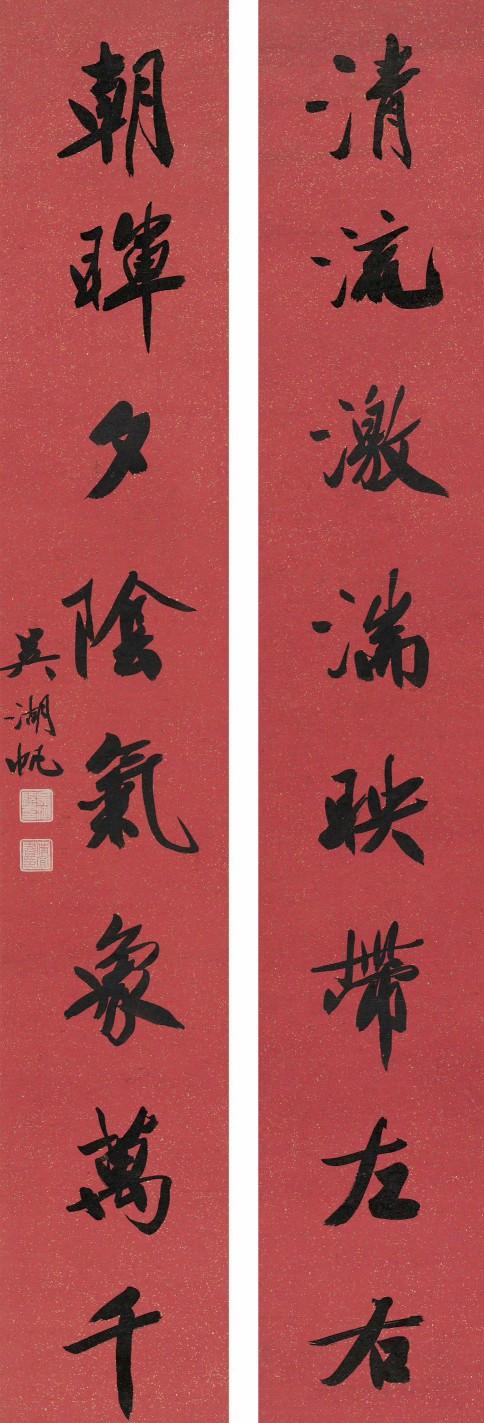 清流激湍映帶左右
朝暉夕陰氣象萬千
吳湖帆